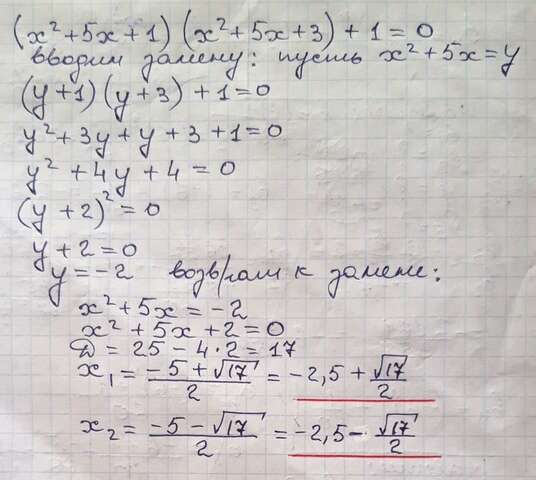 (x² + 5x + 1) (x² + 5x + 3) + 1 = 0
вводим замену: пусть x² + 5x = y
(y + 1) (y + 3) + 1 = 0
y² + 3y + y + 3 + 1 = 0
y² + 4y + 4 = 0
(y + 2)² = 0
y + 2 = 0
y = -2 возврат к замене:
x² + 5x = -2
x² + 5x + 2 = 0
D = 25 - 4·2 = 17
x₁ = (-5 + √17)/2 = -2,5 + √17/2
x₂ = (-5 - √17)/2 = -2,5 - √17/2